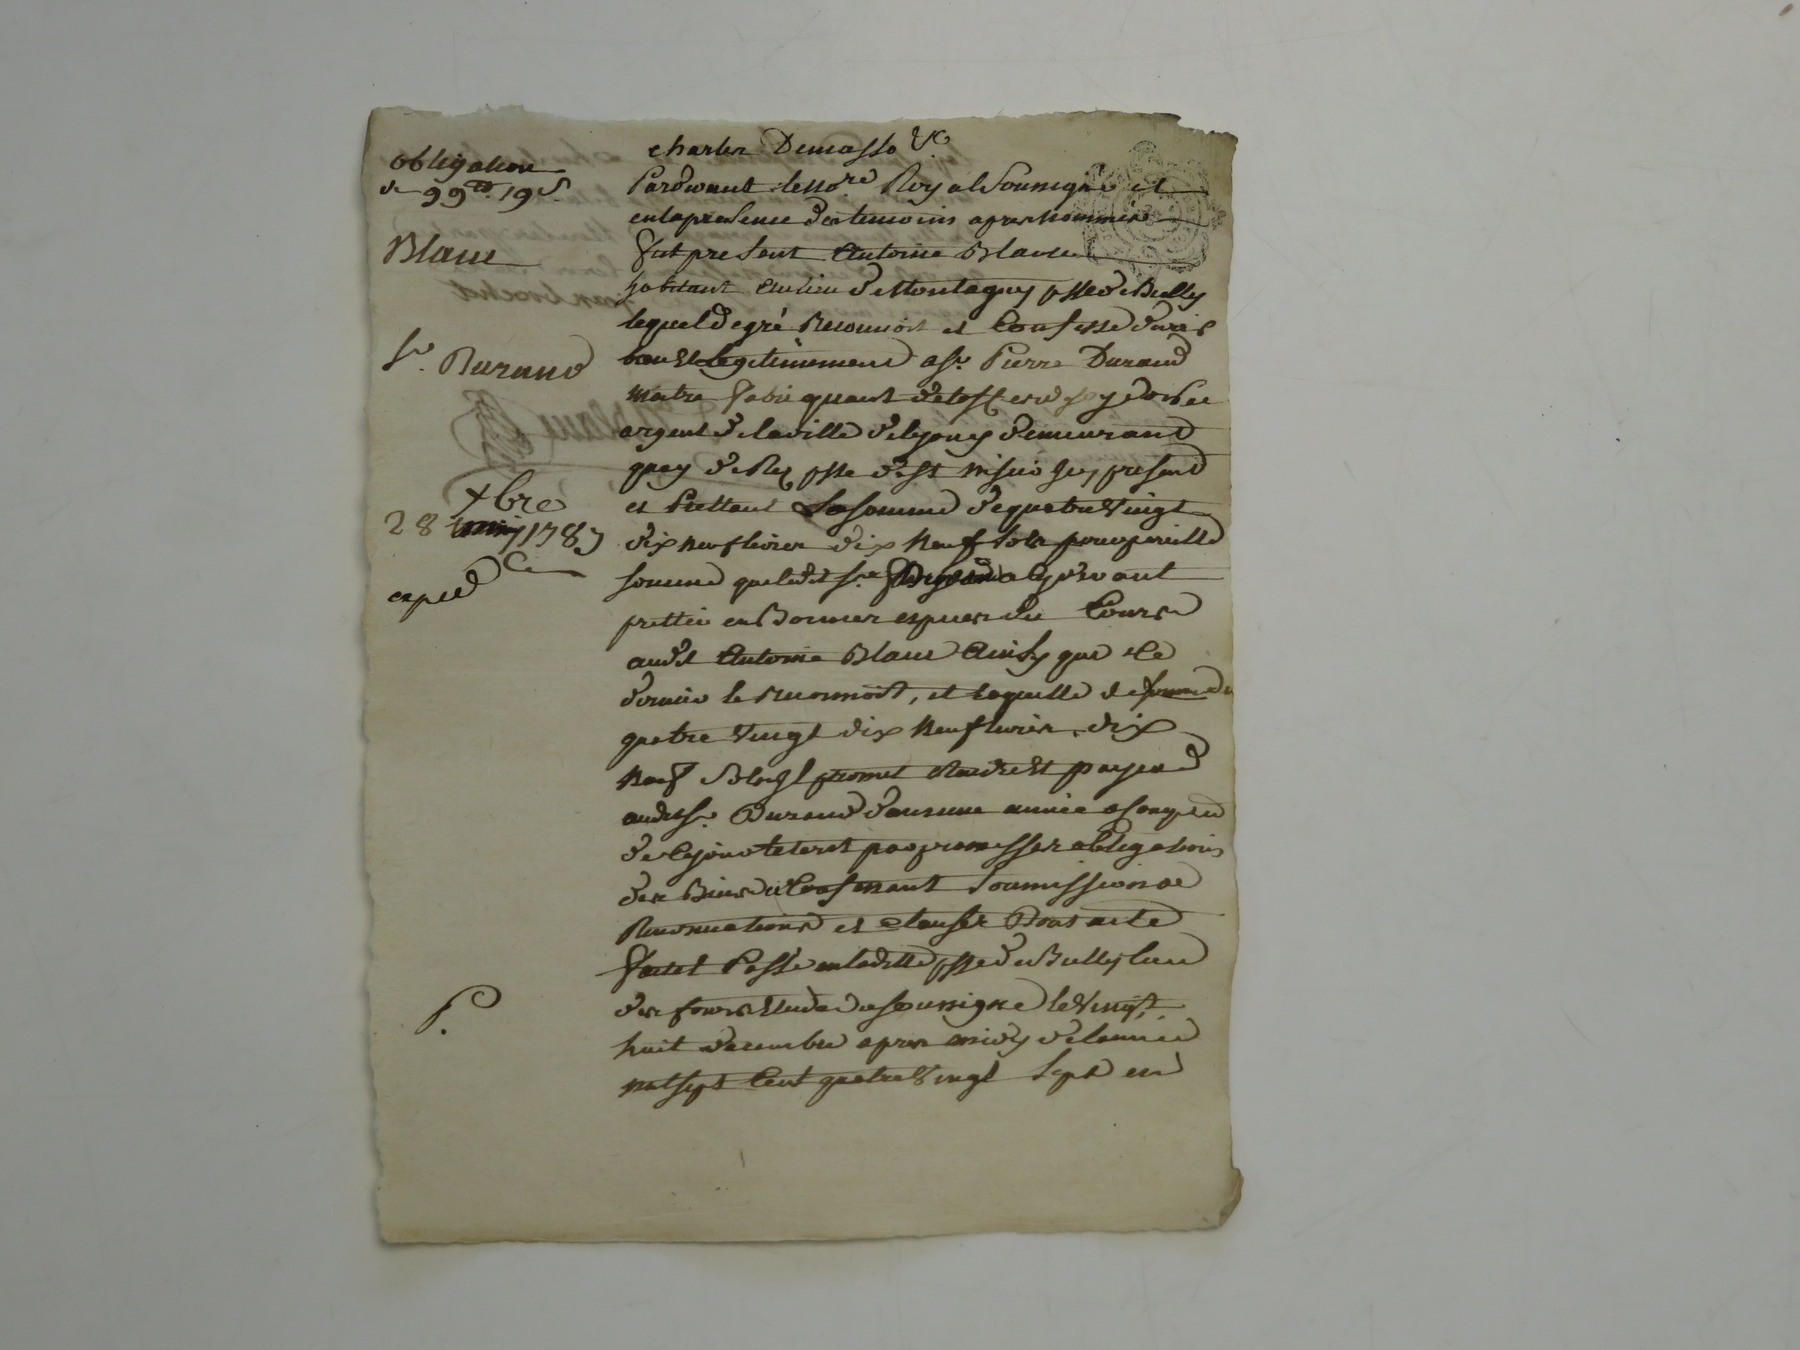 obligation
de 99tt 19s
Blanc
sr. Durand
xbre
28 1787
exped
charles Demasso &c
Pardevant le nore Royal Soussigné et
en la presence des temoins apres nommés
fut present Antoine Blanc
habitant au lieu de Montagny psse de Bully
lequel de gré Reconnoit et Confesse devoir
bien et legitimement a sr. Pierre Durand
Maitre fabriquant d'etoffes d'or et
argent de la ville de lyon y demeurant
quay de Retz psse de st nisier icy present
et acceptant La somme de quatre Vingt
dix neuf livres dix neuf sols pour pareille
somme que ledit sr. Durand a cy devant
prettée en Bonnes especes du Cours
audit Antoine Blanc Ainsy que Ce
dernier le reconnoit, et laquelle de somme de
quatre Vingt dix neuf livres dix
neuf sols il promet Rendre et payer
audit sr. Durand dans une année a compter
de ce jour par promesses obligations
des Biens Confessant Soumissions
Renonciations et clauses Dont acte
fait et Passé en laditte psse de Bully lieu
des fours Etude du soussigné le Vingt
huit decembre apres midy de l'année
mil sept Cent quatre Vingt Sept en
P.